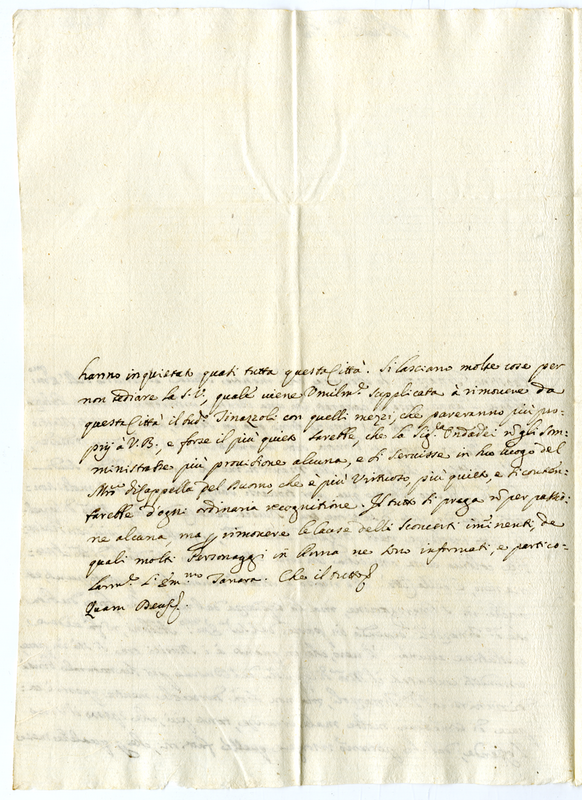 hanno inquietato quasi tutta questa Città. Si lasciano molte cose per
non tediare la S.V., quale viene Umilm.e supplicata à rimovere da
questa Città il sud.o Tinazzoli con quelli mezzi, che pareranno più pro-
prij à V.B., e forse il più quieto sarebbe, che la Sig.ra Ondadei nõ gli som-
ministrasse più provisione alcuna, e si servisse in suo luogo del
Mro di Cappella del Buono, che è più Virtuoso più quieto, e si conten-
tarebbe d'ogni ordinaria recognitione. Il tutto si prega nõ per passio-
ne alcuna, ma p rimovere le cause delli sconcerti iminenti, de
quali molti Personaggi in Roma ne sono informati, e partico-
larm.e l'Em.mo Tanara. Che il tutto
Quam Deus